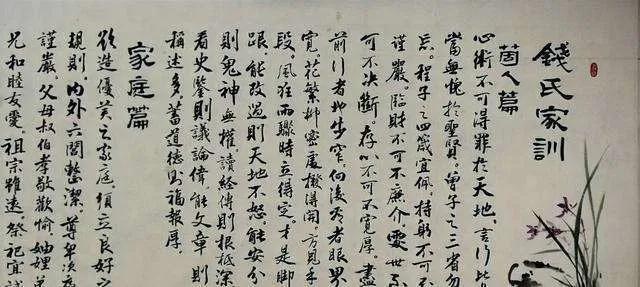 錢氏家訓
箇人篇
心術不可得罪於天地。言行
當無愧於聖賢。曾子之三省勿
忘。程子之四箴宜佩。持躬不可
謹嚴。臨財不可不廉介。處世不
可不決斷。存心不可不寬厚。盡
前行者地步窄。向後看者眼界
寬。花繁柳密處撥得開。方見手
段。風狂雨驟時立得定。才是腳
跟。能改過則天地不怒。能安分
則鬼神無權。讀經傳則根柢深
看史鑒則議論偉。能文章則
稱述多。蓄道德則福報厚。
家庭篇
欲造優美之家庭。須立良好之
規則。內外六閭整潔。尊卑次序
謹嚴。父母叔伯孝敬歡愉。妯娌
兄和睦友愛。祖宗雖遠。祭祀宜誠